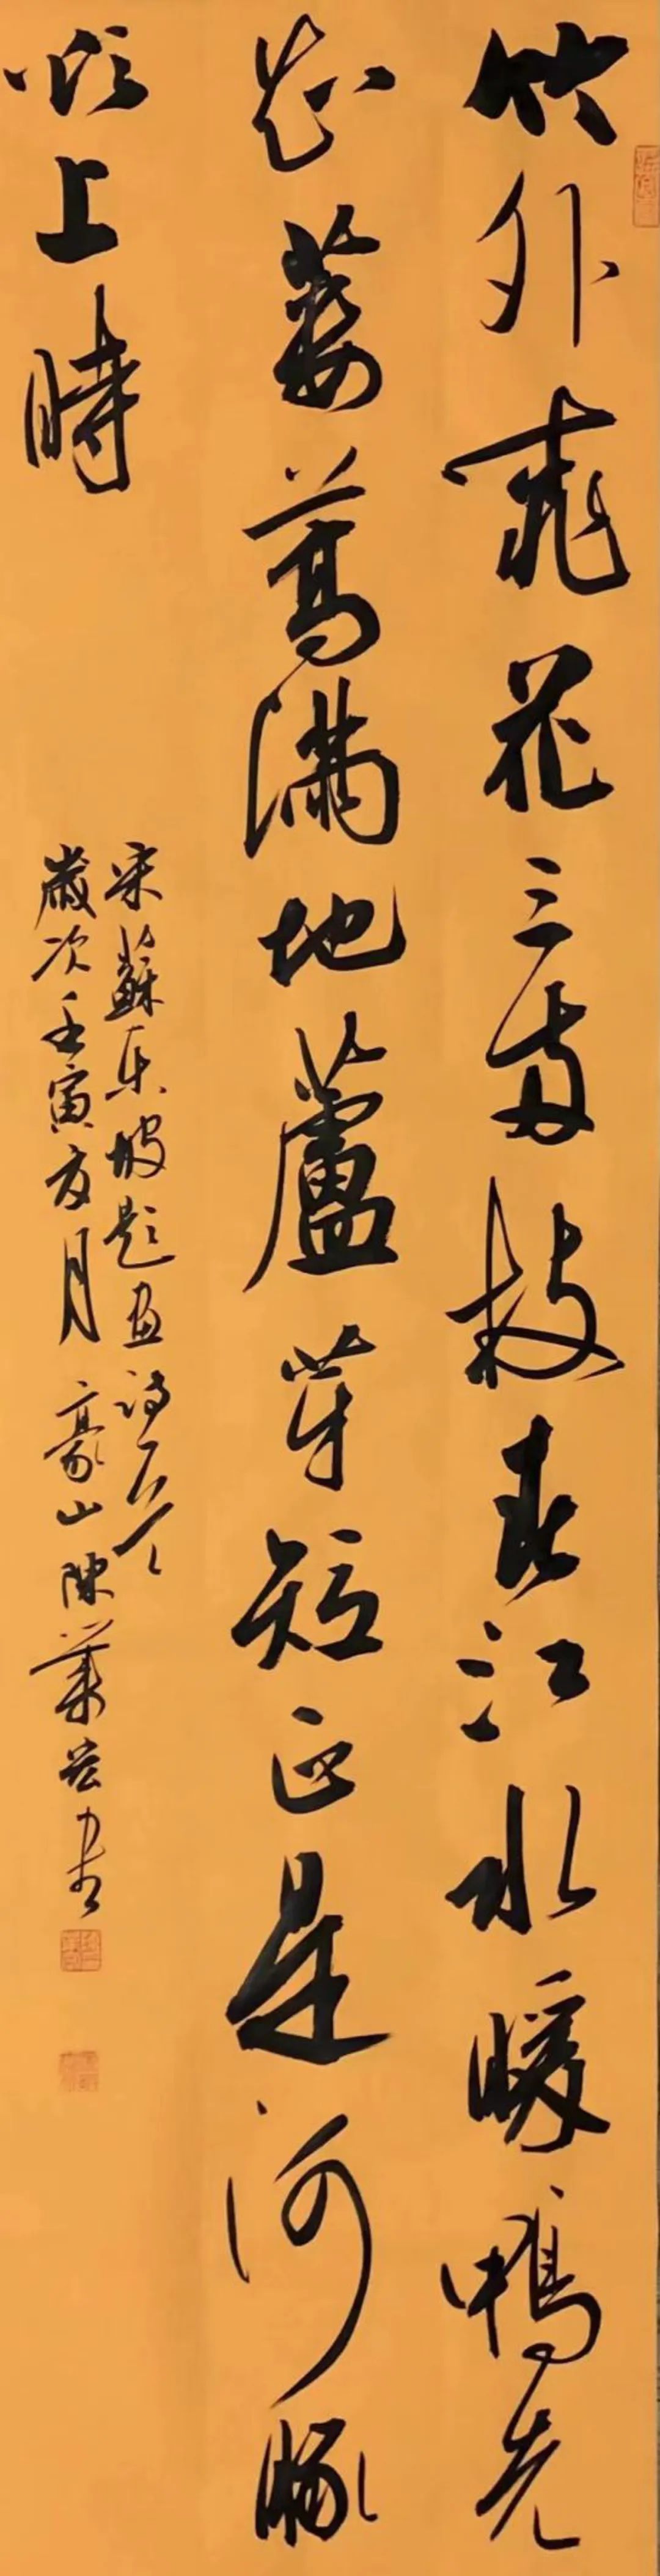 竹外桃花三兩枝春江水暖鴨先
知蔞蒿滿地蘆芽短正是河豚
欲上時
宋蘇東坡題畫詩一首
歲次壬寅友月豪山陳業岩書